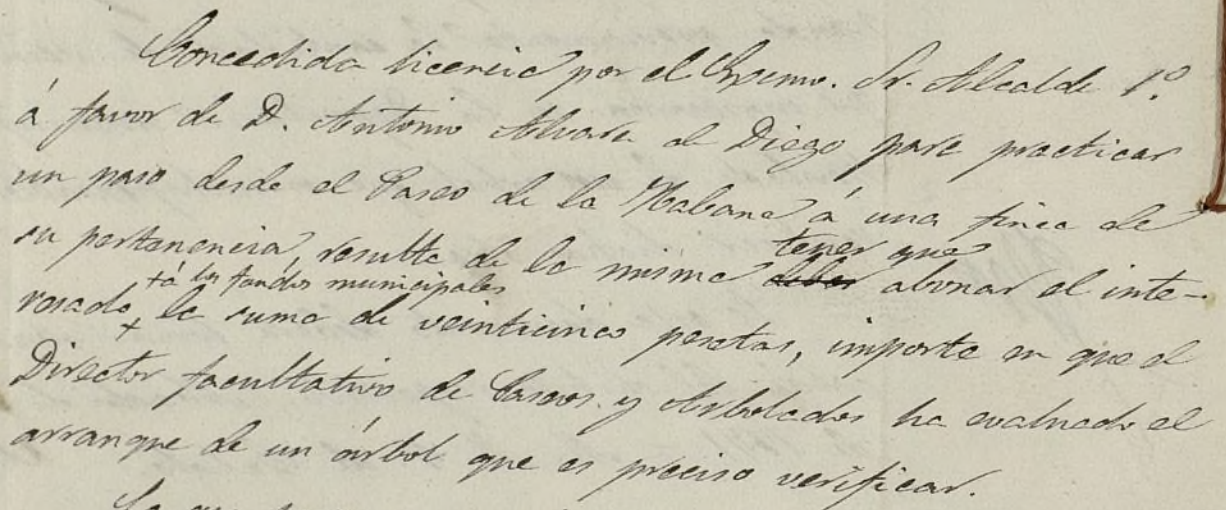 Concedida licencia por el Excmo. Sr. Alcalde 1º.
á favor de D. Antonio Alvarez de Diego para practicar
un paso desde el Paseo de la Habana á una finca de
su pertenencia, resulta de la misma deber tener que abonar el inte-
+ á los fondos municipales
resado, + la suma de veinticinco pesetas, importe en que el
Director facultativo de Paseos y Arbolados ha evaluado el
arranque de un árbol que es preciso verificar.